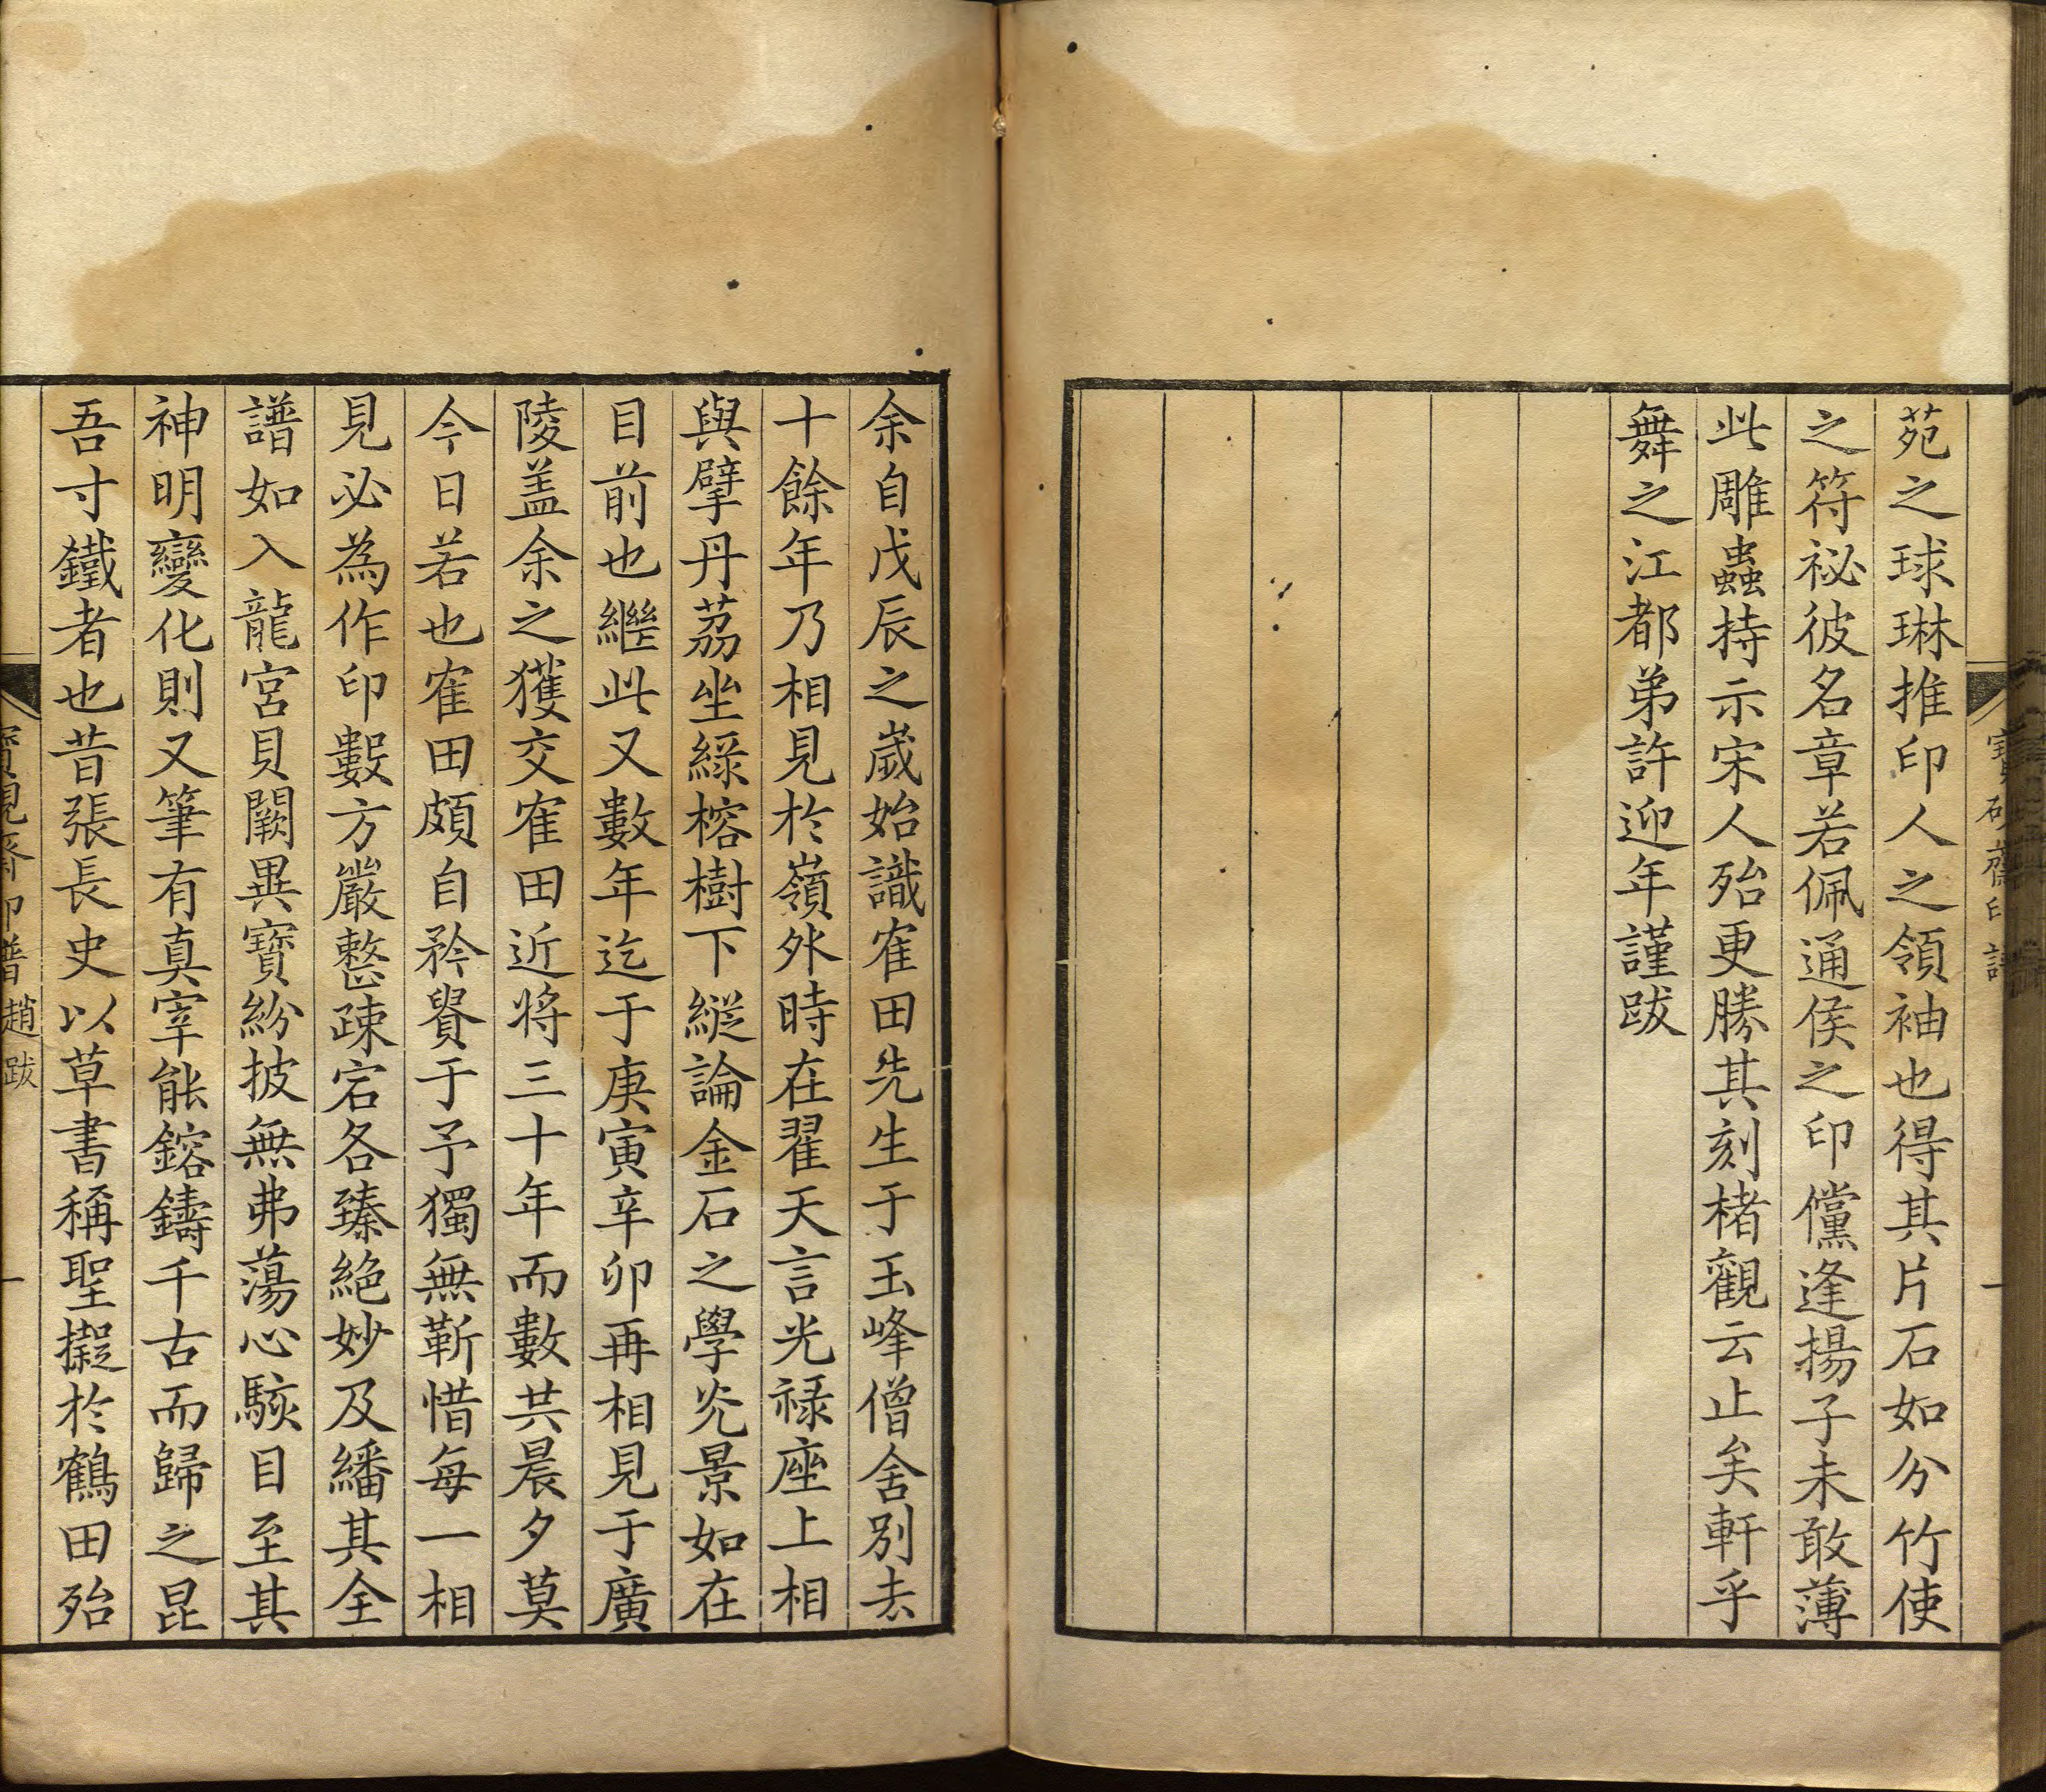 苑之球琳推印人之領袖也得其片石如分竹使
之符祕彼名章若佩通侯之印儻逢揚子未敢薄
此雕蟲持示宋人殆更勝其刻楮觀云止矣軒乎
舞之江都弟許迎年謹跋
余自戊辰之歲始識隺田先生于玉峰僧舍別去
十餘年乃相見於嶺外時在翟天言光祿座上相
與擘丹荔坐綠榕樹下縱論金石之學光景如在
目前也繼此又數年迄于庚寅辛卯再相見于廣
陵盖余之獲交隺田近將三十年而數共晨夕莫
今日若也隺田頗自矜貴于予獨無靳惜每一相
見必為作印數方嚴整疎宕各臻絶妙及繙其全
譜如入龍宮貝闕異寶紛披無弗蕩心駭目至其
神明變化則又筆有真宰能鎔鑄千古而歸之昆
吾寸鐵者也昔張長史以草書稱聖擬於鶴田殆
趙跋
一